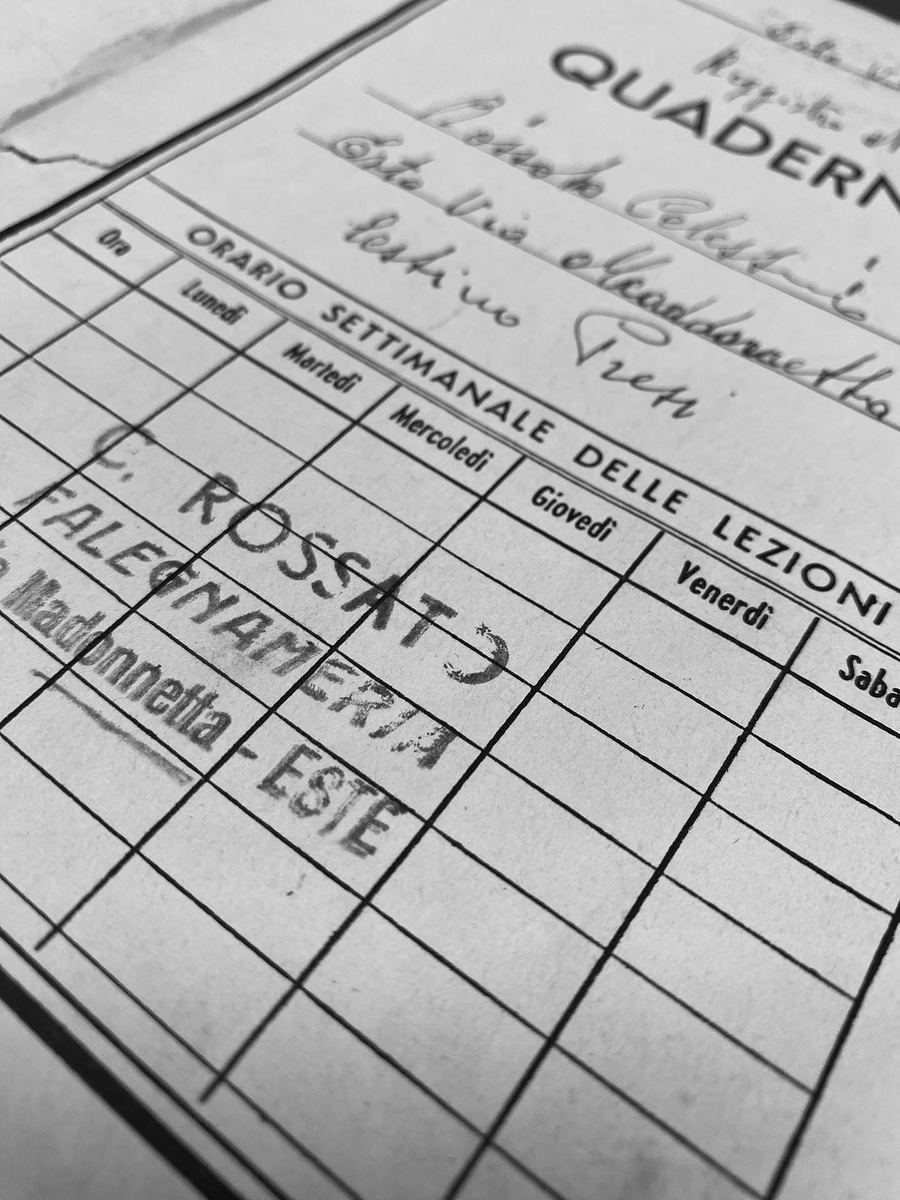 QUADERN
Rossato Celestino
Este Via Madonnetta
Listino Prezzi
ORARIO SETTIMANALE DELLE LEZIONI
Ora Lunedì Martedì Mercoledì Giovedì Venerdì Saba
C. ROSSATO
FALEGNAMERIA
Madonnetta - ESTE